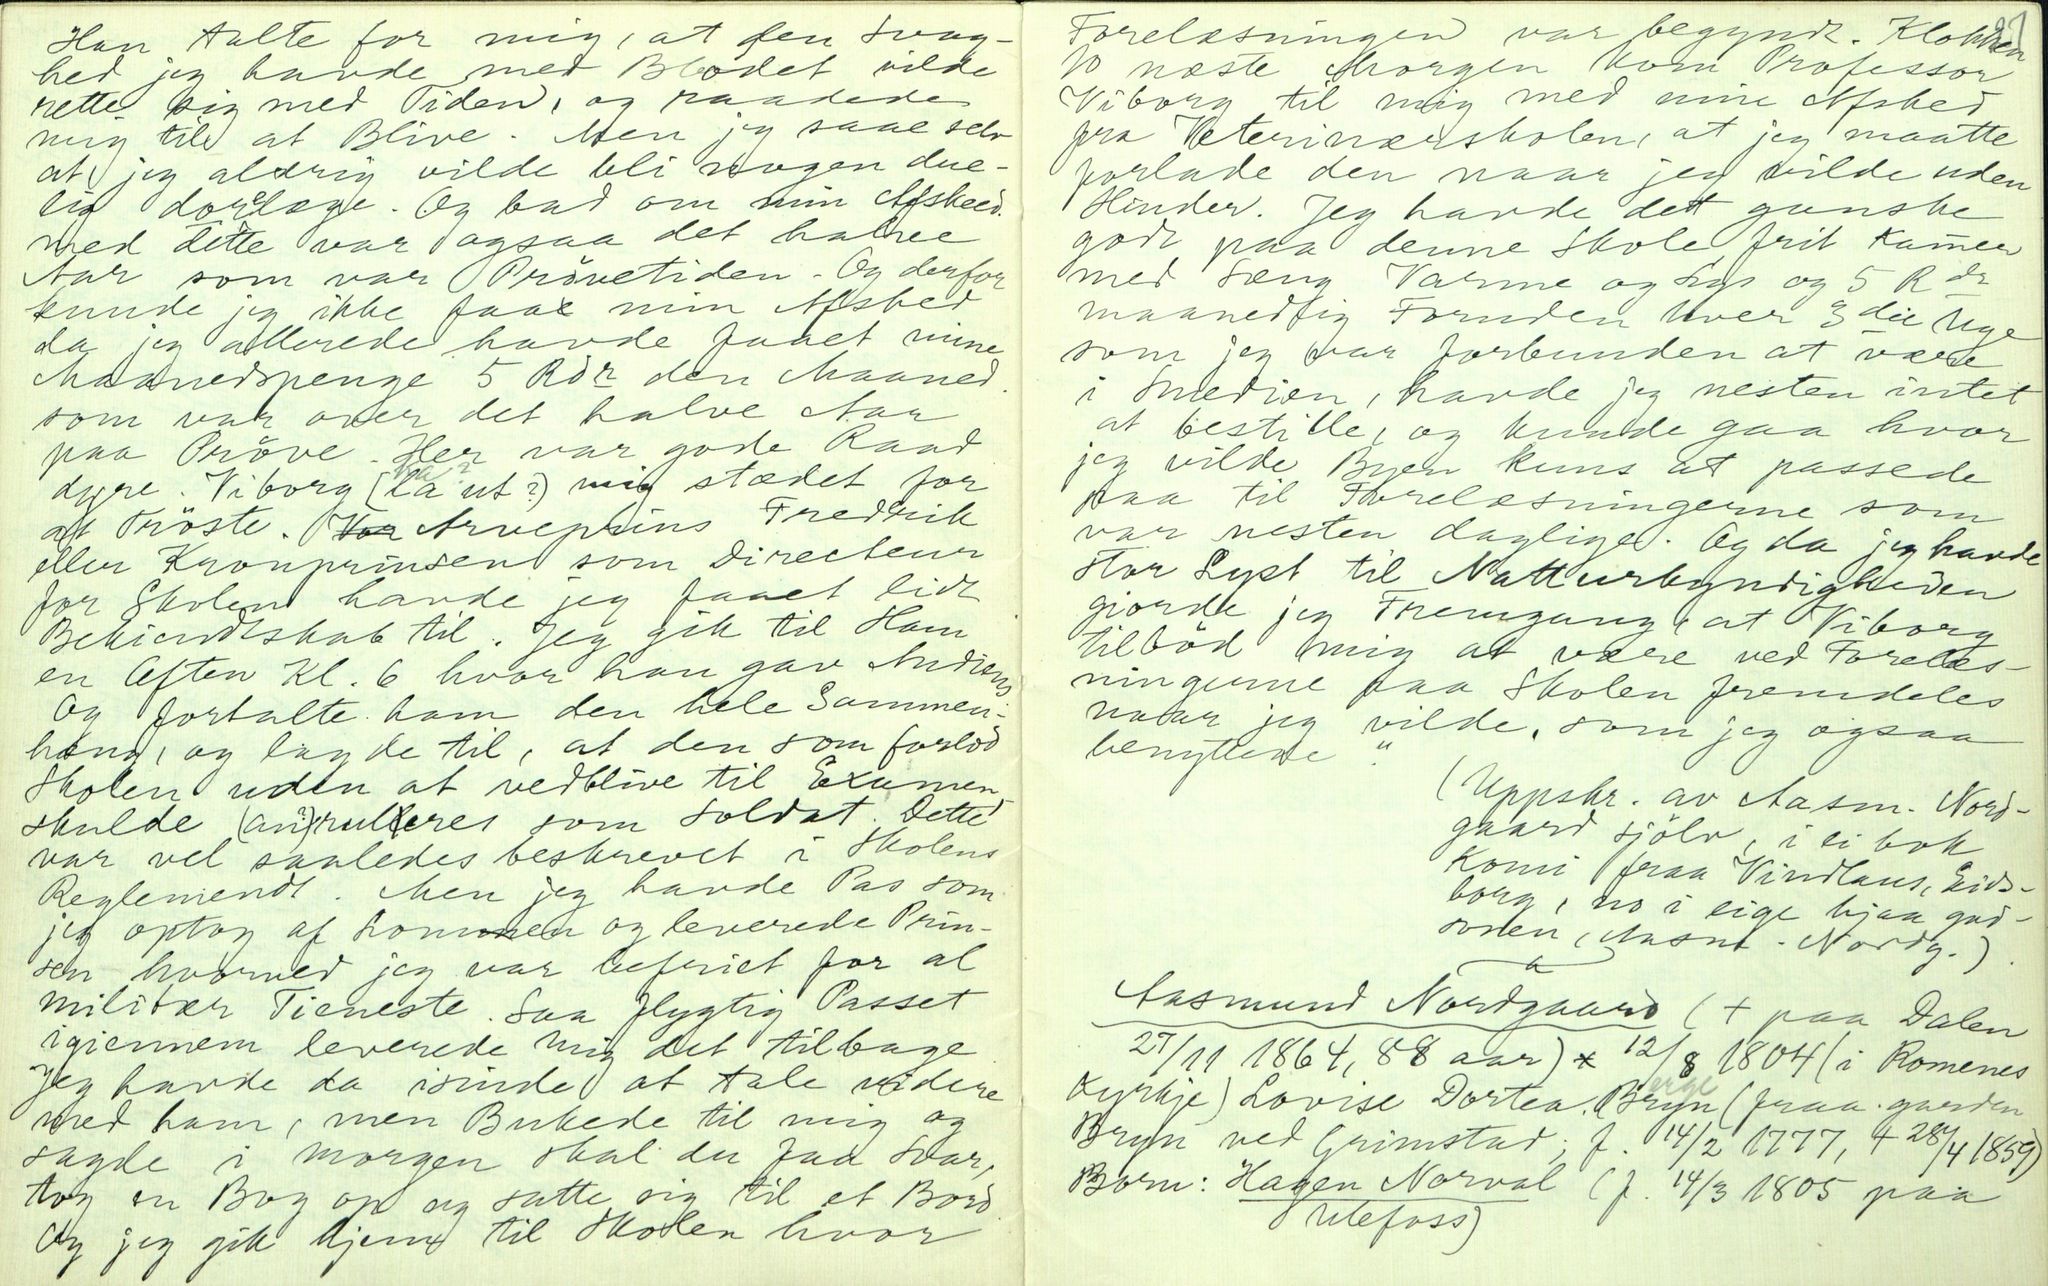 Han talte for mig, at den Svag-
hed jeg havde med Blodet vilde
rette sig med Tiden, og raadede
mig til at Blive. Men jeg saae selv
at jeg aldrig vilde bli nogen due-
lig dorlæge. Og bad om min Afskeed.
med dette var ogsaa det halve
Aar som var Prövetiden. Og derfor
kunde jeg ikke faae min Afsked
da jeg allerede havde faaet mine
Maanedspenge 5 Rdr den Maaned
som var over det halve Aar
paa Pröve. Her var gode Raad
dyre. Viborg (la ut?) mig stædet for
at Tröste. Arveprins Fredrik
eller Kronprinsen som Directeur
for Skolen havde jeg faaet lidt
Bekiendtskab til. Jeg gik til Ham
en Aften Kl. 6 hvor han gav Audiens
Og fortalte ham den hele Sammen-
hæng, og lagde til, at den som forlod
Skolen uden at vedblive til Examen
skulde (an?)rulleres som Soldat. Dette
var vel saaledes beskrevet i Skolens
Reglemendt. Men jeg havde Pas som
jeg optog af Lommen og leverede Prin-
sen hvorved jeg var befriet for al
militær Tieneste. Saa flygtig Passet
igiennem leverede mig det tilbage
Jeg havde da isinde at tale videre
med ham, men Bukede til mig og
sagde i morgen skal du faa Svar,
tog en Bog op og satte sig til et Bord
Og jeg gik hjem til Skolen hvor
27
Forelæsningen var begyndt. Klokken
10 næste Morgen kom Professor
Viborg til mig med min Afsked
fra Veterinærskolen, at jeg maatte
forlade den naar jeg vilde uden
Hinder. Jeg havde det ganske
godt paa denne Skole frit Kamer
med Seng Varme og Lys og 5 Rdr
maanedlig Foruden hver 3die Uge
som jeg var forbunden at være
i Smedien, havde jeg nesten intet
at bestille, og kunde gaa hvor
jeg vilde Byen kuns at passede
paa til Forelæsningerne som
var nesten daglige. Og da jeg havde
stor Lyst til Natturkyndigheden
giorde jeg Fremgang, at Viborg
tilböd mig at være ved Forelæs-
ningerne paa Skolen fremdeles
naar jeg vilde, som jeg ogsaa
benyttede "
(Uppskr. av Aasm. Nord-
gaard sjölv, i ei bok
komi fraa Vindlaus, Eids-
borg, no i eige hjaa gud-
sonen, Aasm. Nordg.)
Aasmund Nordgaard († paa Dalen
27/11 1864, 88 aar) x 12/8 1804 (i Romenes
kyrkje) Lovise Dortea Bryn (fraa garden
Bryn ved Grimstad; f. 14/2 1777, † 28/4 1859)
Born: Hagen Norval (f. 14/3 1805 paa
Ulefoss)